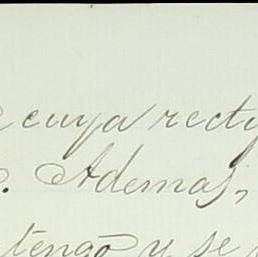 cuya recty
. Ademas,
tengo y se